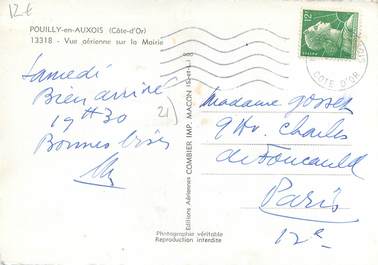 12€
POUILLY-en-AUXOIS (Côte-d'Or)
13318 - Vue aérienne sur la Mairie
Samedi
Bien arrivé
19H30
Bonnes bises
21
Editions Aériennes COMBIER IMP. MACON (S.-et-L.)
Photographie véritable
Reproduction interdite
12
COTE D'OR
Madame Gosset
9 Av. Charles
de Foucauld
Paris
12e